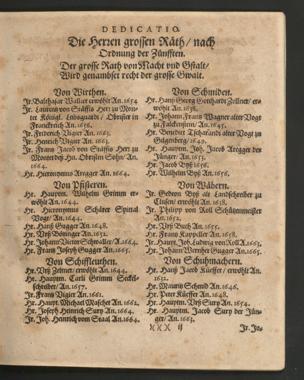 DEDICATIO.
Die Herren grossen Räth / nach
Ordnung der Zünfften.
Der grosse Rath von Macht vnd Gstalt /
Wird genambset recht der grosse Gwalt.
Von Wirthen.
Jr. Balthasar Walier erwöhlt An. 1634.
Jr. Laurentz von Stäffis Herr zu Mon-
tet Königl. Leibquardi / Obrister in
Franckreich An. 1656.
Jr. Friderich Vigier An. 1663.
Jr. Henrich Vigier An. 1663.
Jr. Frantz Jacob von Stäffis Herr zu
Montet deß Hn. Obristen Sohn / An.
1664.
Hr. Hieronymus Aregger An. 1664.
Von Pfisteren.
Hr. Hauptm. Wilhelm Grimm er-
wöhlt An. 1644.
Hr. Hieronymus Schärer Spinal
Vogt / 1644.
Hr. Hanß Gugger An. 1648.
Hr. Vrß Böninger An. 1652.
Hr. Johann Victor Schwaller / A. 1664.
Hr. Frantz Joseph Gugger An. 1665.
Von Schiffleuthen.
Hr. Vrß Zeltner / erwöhlt An. 1644.
Hr. Hauptm. Carli Grimm Seckel-
schreiber / An. 1657.
Jr. Frantz Vigier An. 1661.
Hr. Haupt. Michael Macher An. 1661.
Hr. Joseph Heinrich Sury An. 1664.
Hr. Joh. Heinrich vom Staal An. 1664.
Von Schmiden.
Hr. Hanß Georg Gotthardt Zellner / er-
wöhlt An. 1638.
Hr. Johann Frantz Wagner alter Vogt
zu Falckenstein / An. 1645.
Hr. Benedict Tscharandi alter Vogt zu
Gilgenberg / 1649.
Hr. Hauptm. Joh. Jacob Aregger der
Jünger / An. 1653.
Hr. Jacob Byß 1656.
Hr. Wilhelm Byß An. 1656.
Von Wäbern.
Jr. Gedeon Byß alt Landschreiber zu
Clusen / erwöhlt An. 1638.
Jr. Philipp von Roll Schützenmeister
An. 1652.
Hr. Vrß Buch An. 1655.
Hr. Frantz Kappeller An. 1658.
Jr. Haupt. Joh. Ludwig von Roll A. 1663.
Hr. Johann Wernher Gugger An. 1665.
Von Schuhmachern.
Hr. Hanß Jacob Küeffer / erwöhlt An.
1632.
Hr. Mauritz Schmid An. 1646.
Hr. Peter Küeffer An. 1648.
Hr. Hauptm. Vrß Sury An. 1654.
Hr. Hauptm. Jacob Sury der Jün-
ger / An. 1663.
XXX ij
Jr. Jo-